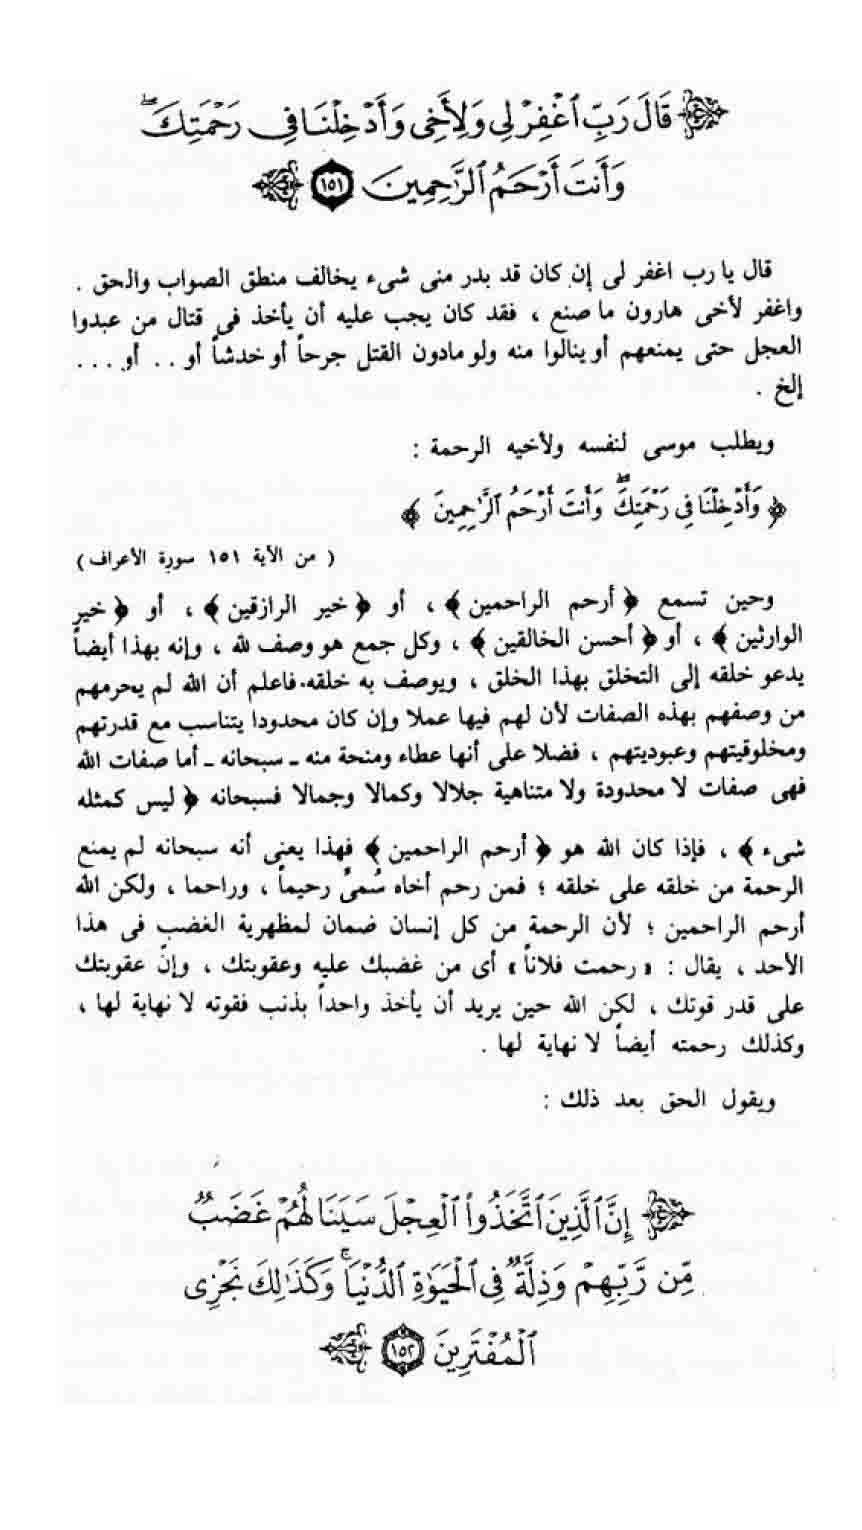 ﴿ قَالَ رَبِّ ٱغْفِرْ لِى وَلِأَخِى وَأَدْخِلْنَا فِى رَحْمَتِكَ ۖ
وَأَنتَ أَرْحَمُ ٱلرَّٰحِمِينَ ١٥١ ﴾
قال يا رب اغفر لى إن كان قد بدر منى شىء يخالف منطق الصواب والحق .
واغفر لأخى هارون ما صنع ، فقد كان يجب عليه أن يأخذ فى قتال من عبدوا
العجل حتى يمنعهم أو ينالوا منه ولو مادون القتل جرحاً أو خدشاً أو . . أو . . . .
إلخ .
ويطلب موسى لنفسه ولأخيه الرحمة :
﴿ وَأَدْخِلْنَا فِى رَحْمَتِكَ ۖ وَأَنتَ أَرْحَمُ ٱلرَّٰحِمِينَ ﴾
( من الآية ١٥١ سورة الأعراف )
وحين تسمع ﴿ أرحم الراحمين ﴾ ، أو ﴿ خير الرازقين ﴾ ، أو ﴿ خير
الوارثين ﴾ ، أو ﴿ أحسن الخالقين ﴾ ، وكل جمع هو وصف لله ، وإنه بهذا أيضاً
يدعو خلقه إلى التخلق بهذا الخلق ، ويوصف به خلقه. فاعلم أن الله لم يحرمهم
من وصفهم بهذه الصفات لأن لهم فيها عملا وإن كان محدودا يتناسب مع قدرتهم
ومخلوقيتهم وعبوديتهم ، فضلا على أنها عطاء ومنحة منه ـ سبحانه ـ أما صفات الله
فهى صفات لا محدودة ولا متناهية جلالا وكمالا وجمالا فسبحانه ﴿ ليس كمثله
شىء ﴾ ، فإذا كان الله هو ﴿ أرحم الراحمين ﴾ فهذا يعنى أنه سبحانه لم يمنع
الرحمة من خلقه على خلقه ؛ فمن رحم أخاه سُمىَّ رحيماً ، وراحما ، ولكن الله
أرحم الراحمين ؛ لأن الرحمة من كل إنسان ضمان لمظهرية الغضب فى هذا
الأحد ، يقال : « رحمت فلاناً » أى من غضبك عليه وعقوبتك ، وإنّ عقوبتك
على قدر قوتك ، لكن الله حين يريد أن يأخذ واحداً بذنب فقوته لا نهاية لها ،
وكذلك رحمته أيضاً لا نهاية لها .
ويقول الحق بعد ذلك :
﴿ إِنَّ ٱلَّذِينَ ٱتَّخَذُوا۟ ٱلْعِجْلَ سَيَنَالُهُمْ غَضَبٌ
مِّن رَّبِّهِمْ وَذِلَّةٌ فِى ٱلْحَيَوٰةِ ٱلدُّنْيَا ۚ وَكَذَٰلِكَ نَجْزِى
ٱلْمُفْتَرِينَ ١٥٢ ﴾